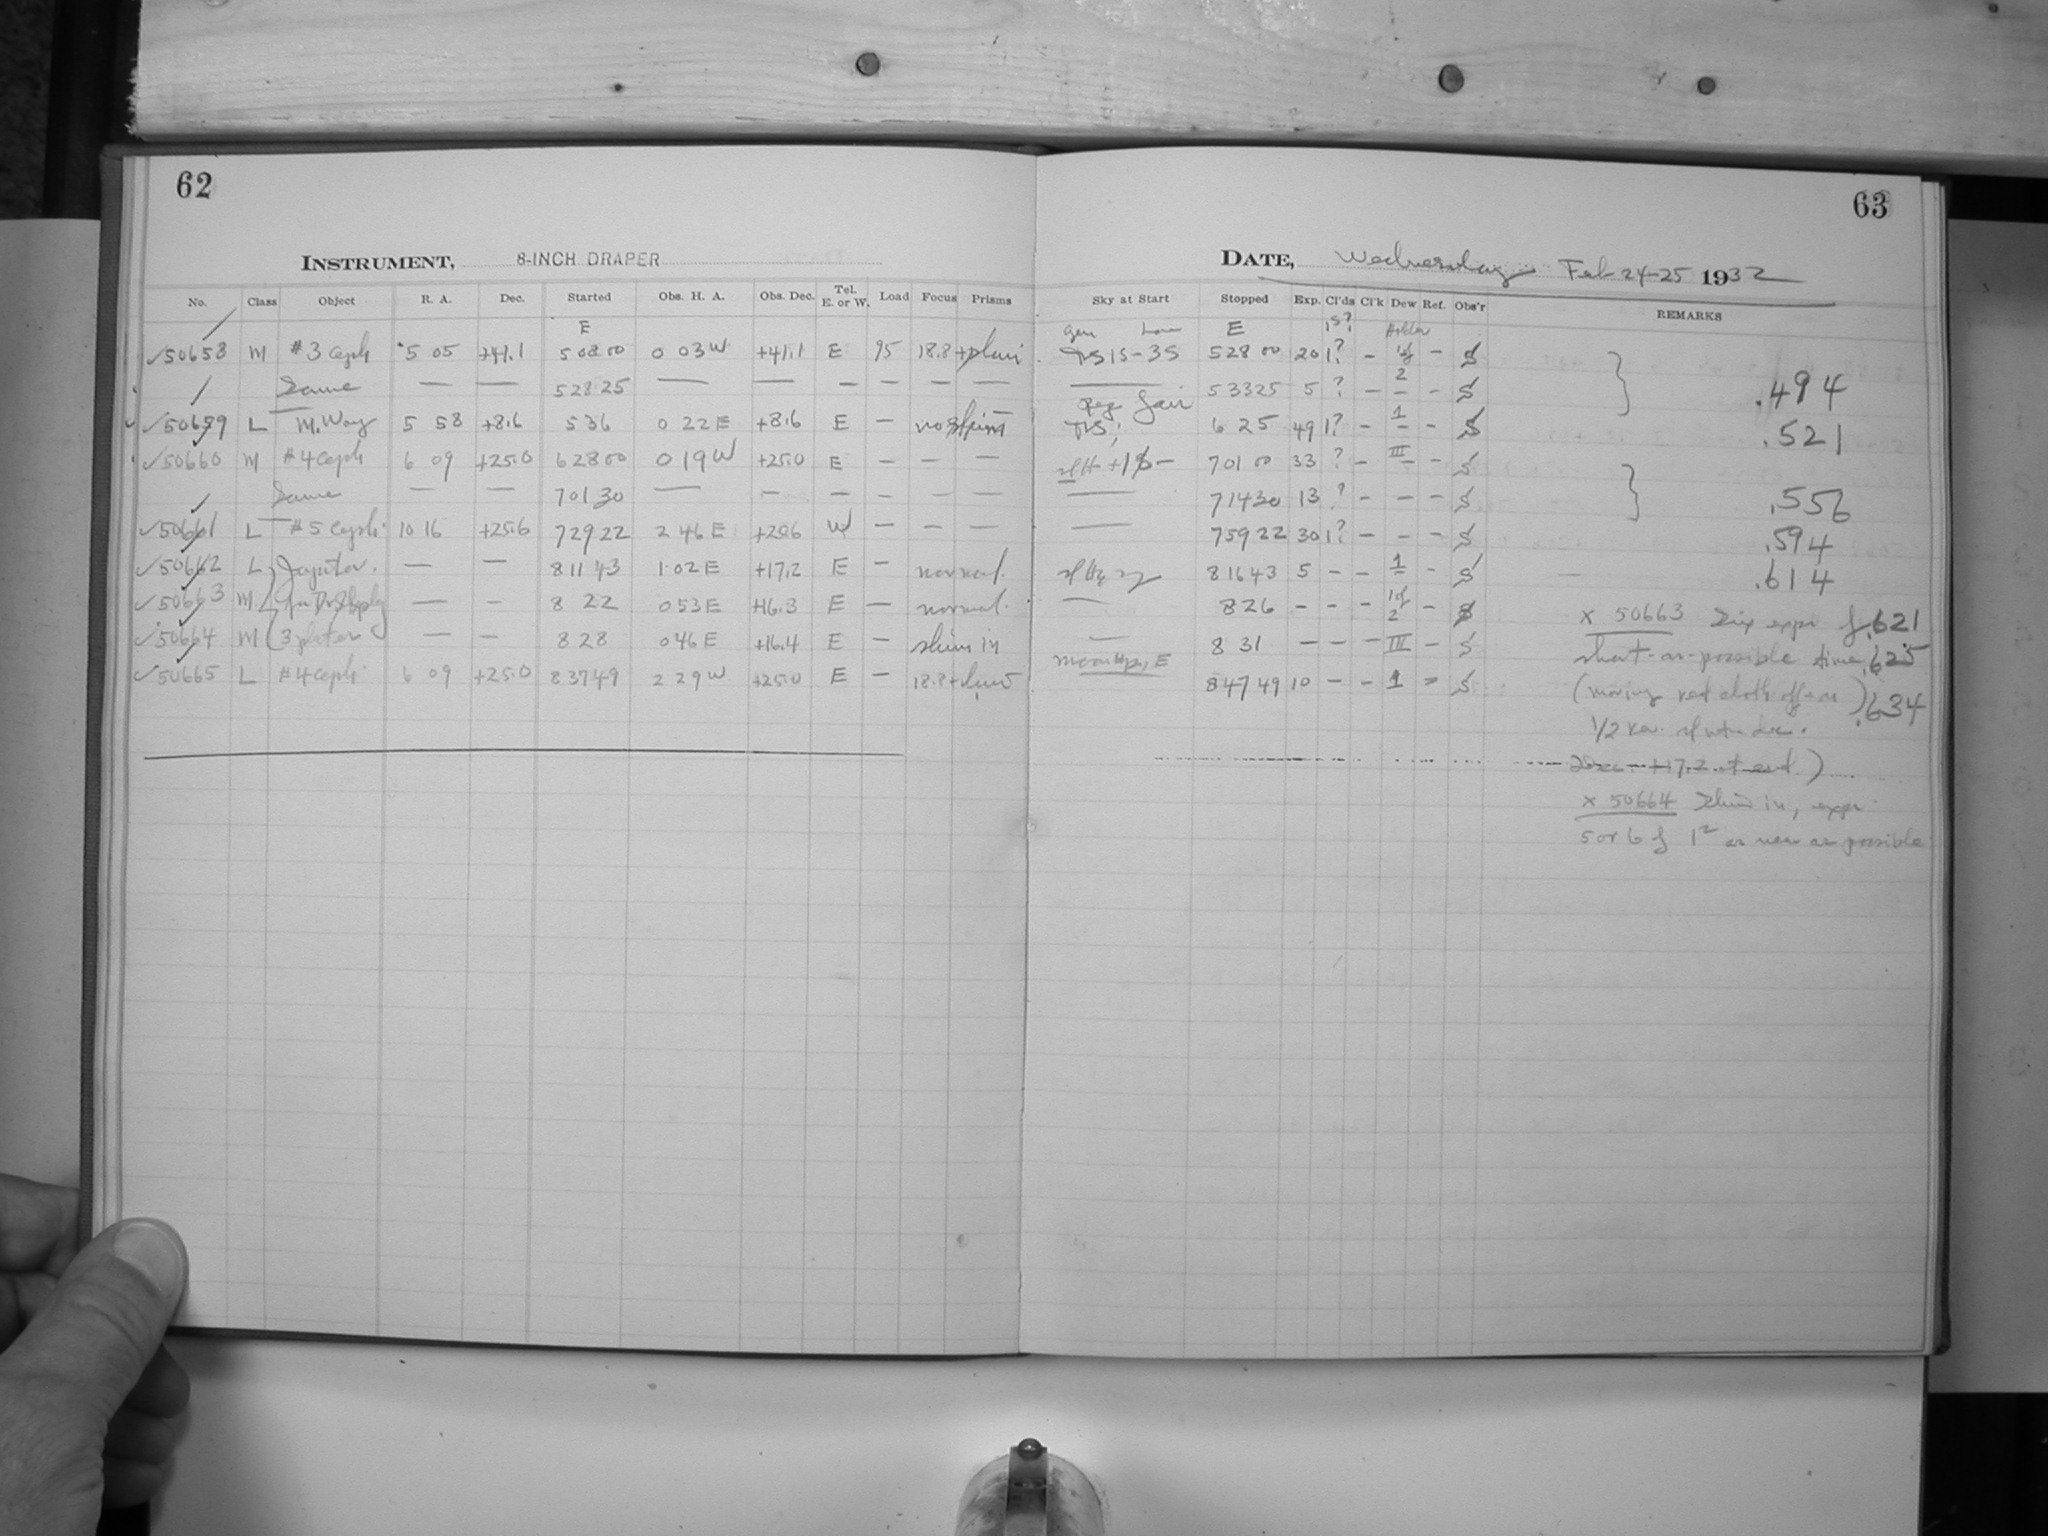 62
INSTRUMENT, 8-INCH DRAPER
No. Class Object R. A. Dec. Started Obs. H. A. Obs. Dec. Tel. E. or W. Load Focus Prisms
E
50658 M #3 ceph 5 05 +41.1 5 08 00 0 03 W +41.1 E 95 18.8
Same — — 5 28 25 — — — — — —
50659 L M. Way 5 58 +8.6 5 36 0 22 E +8.6 E —
50660 M #4 ceph 6 09 +25.0 6 28 00 0 19 W +25.0 E — — —
Same — — 7 01 30 — — — — — —
50661 L #5 ceph. 10 16 +25.6 7 29 22 2 46 E W — — —
50662 L Jupiter. — — 8 11 43 1 02 E +17.2 E — normal.
50663 M — — 8 22 0 53 E +16.3 E — normal.
50664 M 3 plates — — 8 28 0 46 E +16.4 E — shim in
50665 L #4 ceph. 6 09 +25.0 8 37 49 2 29 W +25.0 E — 18.8
63
DATE, Wednesday Feb 24-25 1932
Sky at Start Stopped Exp. Cl'ds Cl'k Dew Ref. Obs'r REMARKS
E Holder
5 28 00 20 1? — — S
— 5 33 25 5 ? — — — S .494
fair 6 25 49 1? — 1 — S .521
7 01 00 33 ? — III — S
— 7 14 30 13 ? — — — S .556
— 7 59 22 30 1? — — — S .594
8 16 43 5 — — 1 — S .614
— 8 26 — — — 1 of 2 — S x 50663 Six expr of .621
— 8 31 — — — III — S short-as-possible time .625
Moon up, E 8 47 49 10 — — 1 — S (moving red cloth off on) .634
1/2 rev.
Dec. +17.2 at end.)
x 50664 Shim in, expr
5 or 6 of 1ˢ as near as possible